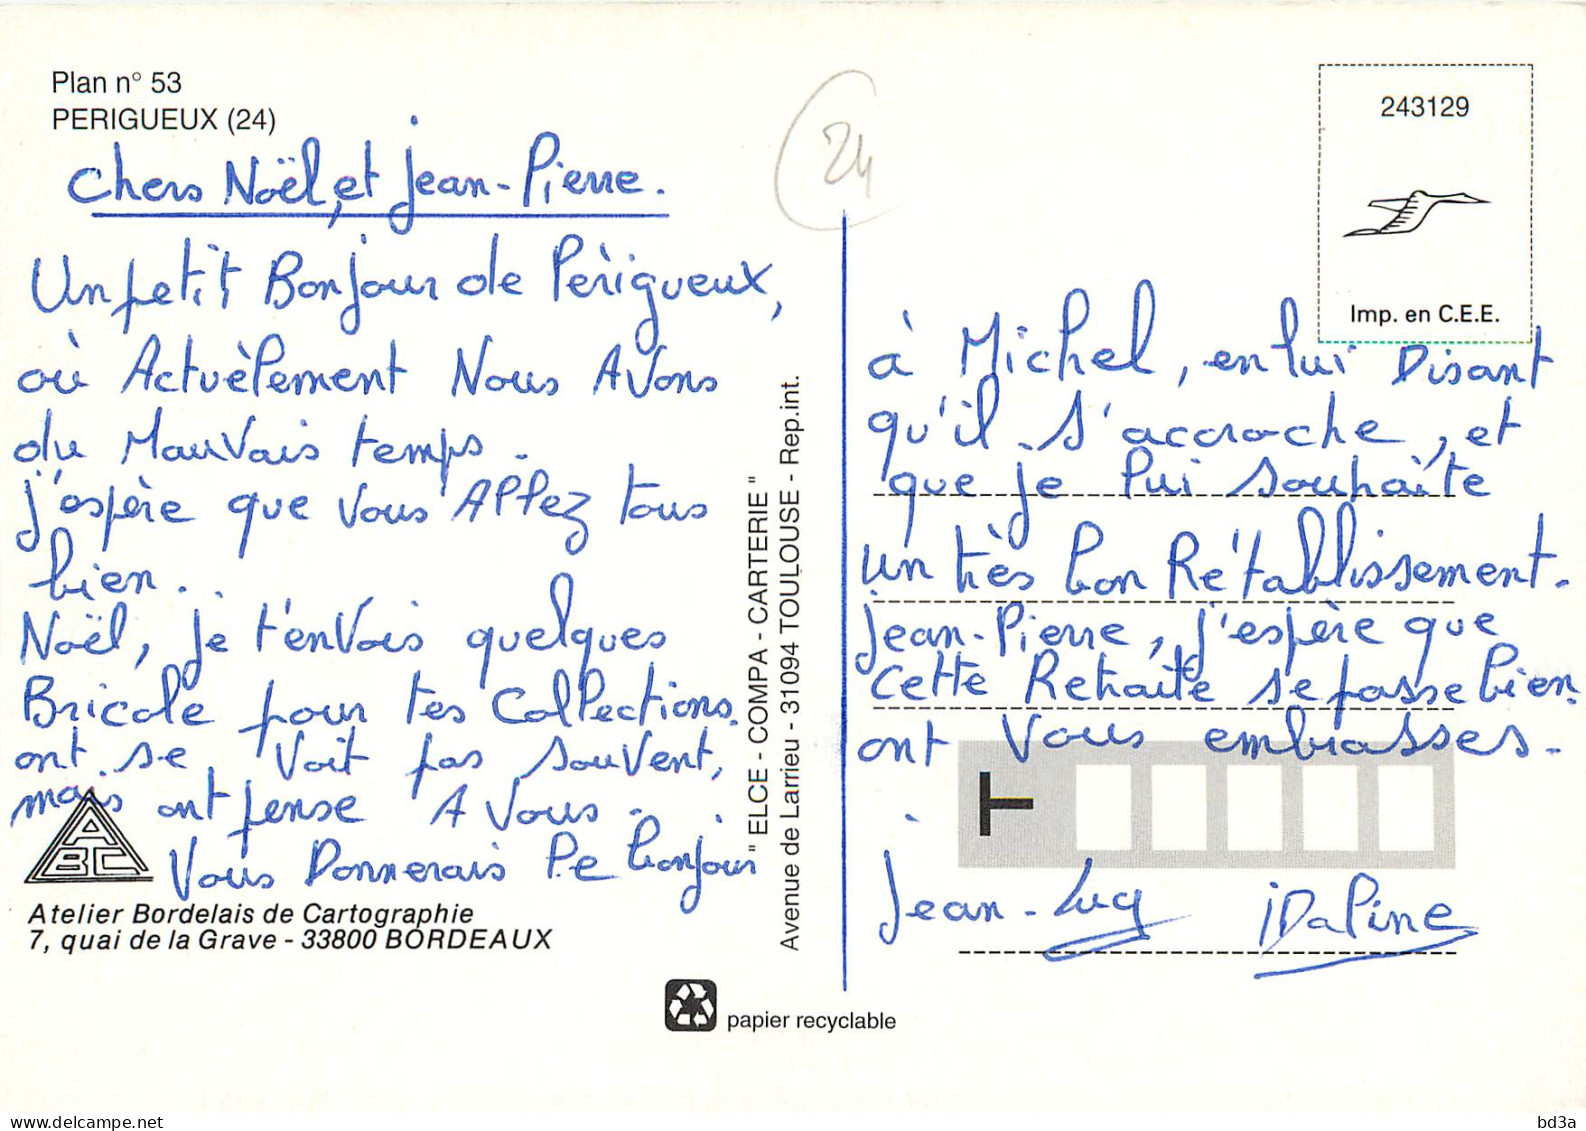 Plan n° 53
PERIGUEUX (24)
24
243129
Imp. en C.E.E.
Chers Noël, et Jean-Pierre.
Un petit Bonjour de Pèrigueux,
où Actuèlement Nous Avons
du Mauvais temps.
j'espère que vous Allez tous
bien.
Noël, je t'envois quelques
Bricole pour tes Collections.
ont se voit pas souvent,
mais ont pense A vous.
Vous Donnerais le bonjour
à Michel, en lui Disant
qu'il s'accroche, et
que je lui souhaite
un très bon Rétablissement.
Jean-Pierre, j'espère que
cette Retraite se passe bien
ont vous embrasses.
Jean-Luc iDaline
ABC
Atelier Bordelais de Cartographie
7, quai de la Grave - 33800 BORDEAUX
" ELCE - COMPA - CARTERIE "
Avenue de Larrieu - 31094 TOULOUSE - Rep.int.
papier recyclable
www.delcampe.net
bd3a